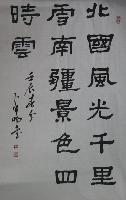 北國風光千里
雪南疆景色四
時雲
壬辰春分